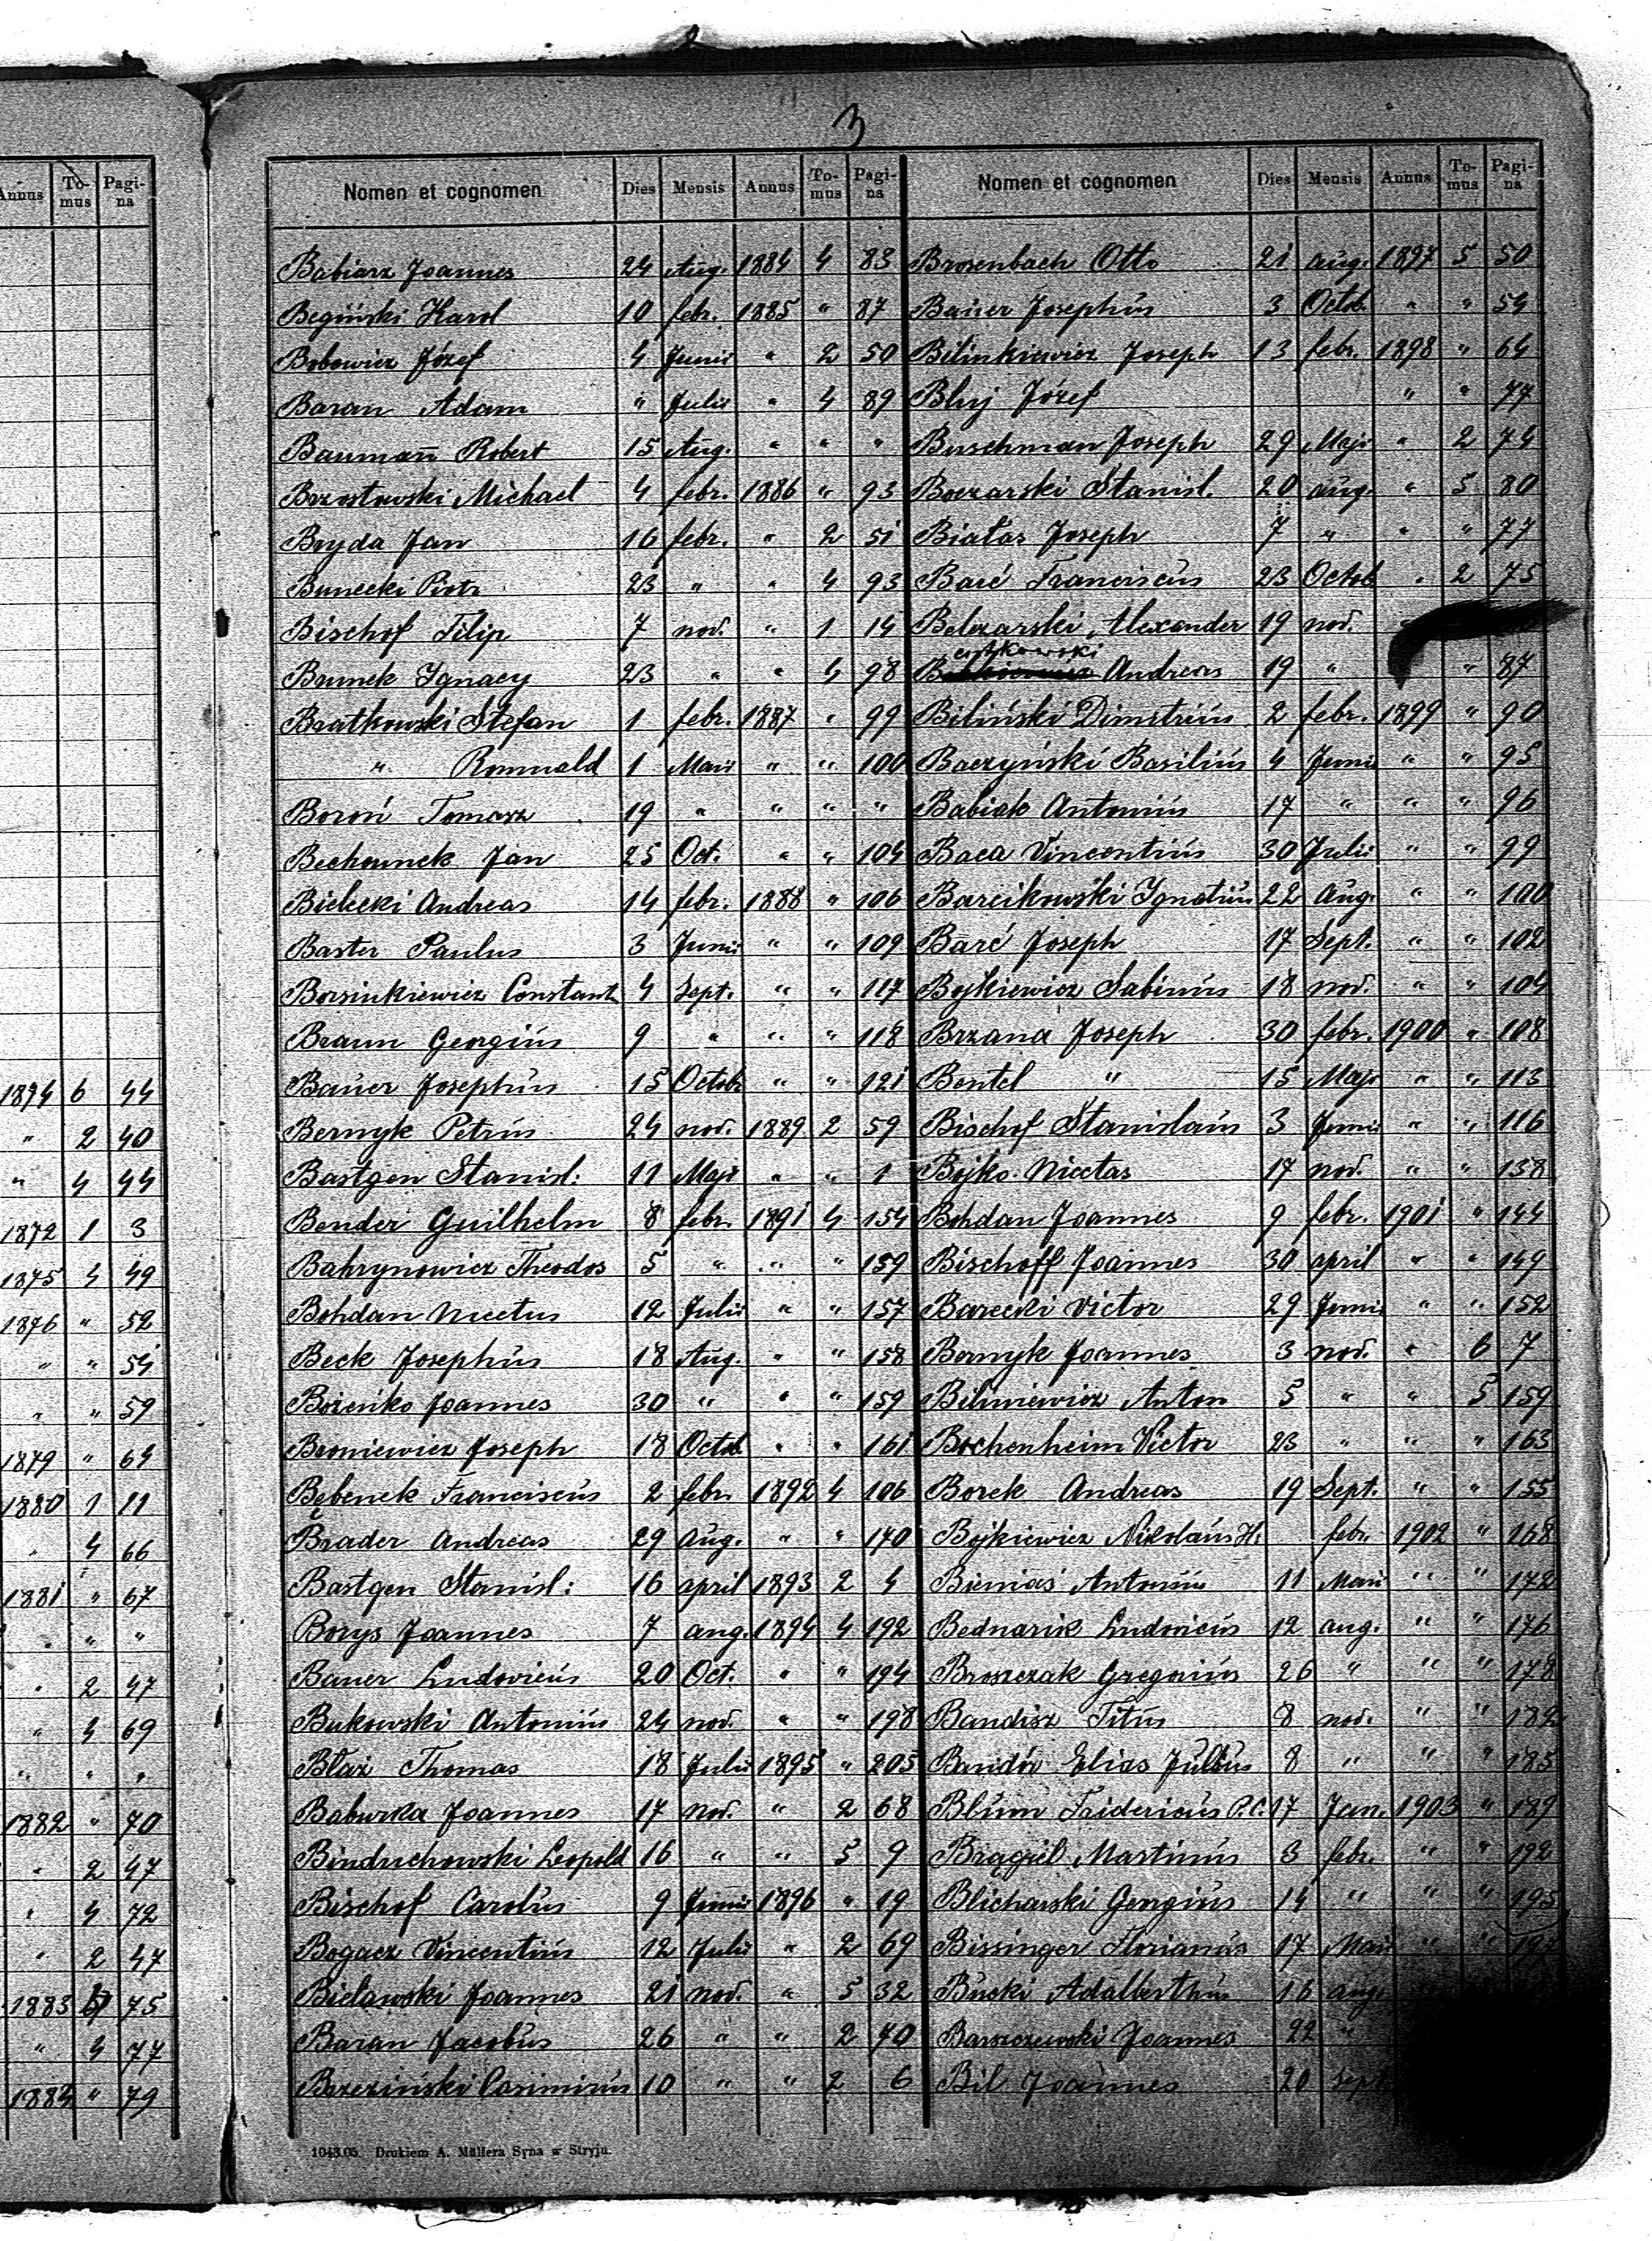 3
Annus To-mus Pagi-na
1894 6 44
" 2 40
" 4 44
1872 1 3
1875 4 49
1876 " 52
" " 54
" " 59
1879 " 64
1880 1 11
" 4 66
1881 " 67
" " "
" 2 47
" 4 69
" " "
1882 " 70
" 2 47
" 4 72
" 2 47
1883 75
" 4 77
1884 " 79
Nomen et cognomen Dies Mensis Annus To-mus Pagi-na
Babiarz Joannes 24 Aug. 1884 4 83
Begiński Karol 10 febr. 1885 " 87
Bobowicz Józef 4 Junii " 2 50
Baran Adam " Julii " 4 89
Baumann Robert 15 Aug. " " "
Brzostowski Michael 4 febr. 1886 " 93
Bryda Jan 16 febr. " 2 51
Bunecki Piotr 23 " " 4 93
Bischof Filip 7 nov. " 1 14
Brunek Ignacy 23 " " 4 98
Bratkowski Stefan 1 febr. 1887 " 99
" Romuald 1 Maii " " 100
Boroń Tomasz 19 " " " "
Bechounek Jan 25 Oct. " " 104
Bielecki Andreas 14 febr. 1888 " 106
Baster Paulus 3 Junii " " 109
Borsinkiewicz Constant 4 Sept. " " 117
Braun Georgius 9 " " " 118
Bauer Josephus 15 Octob " " 121
Bernyk Petrus 24 nov. 1889 2 59
Bastgen Stanisl: 11 Maji " " 1
Bender Guilhelm 8 febr. 1891 4 154
Bahrynowicz Theodos 5 " " " 159
Bohdan Nicetus 12 Julii " " 157
Beck Josephus 18 Aug. " " 158
Bożeńko Joannes 30 " " " 159
Broniewicz Joseph 18 Octob " " 161
Bębenek Franciscus 2 febr. 1892 4 106
Brader Andreas 29 aug. " " 170
Bastgen Stanisl: 16 april 1893 2 4
Borys Joannes 7 aug. 1894 4 192
Bauer Ludovicus 20 Oct. " " 194
Bukowski Antonius 24 nov. " " 198
Błaż Thomas 18 Julii 1895 " 205
Baburka Joannes 17 nov. " 2 68
Binduchowski Leopold 16 " " 5 9
Bischof Carolus 9 Junii 1896 " 19
Bogacz Vincentius 12 Julii " 2 69
Bielawski Joannes 21 nov. " 5 32
Baran Jacobus 26 " " 2 70
Brzeziński Casimirus 10 " " 2 6
Nomen et cognomen Dies Mensis Annus To-mus Pagi-na
Brosenbach Otto 21 aug. 1897 5 50
Bauer Josephus 3 Octob " " 54
Bilinkiewicz Joseph 13 febr. 1898 " 64
Bluj Józef " " 77
Buschman Joseph 29 Maji " 2 74
Boczarski Stanisl. 20 aug. " 5 80
Białas Joseph 7 " " " 77
Barć Franciscus 23 Octob " 2 75
Belczarski Alexander 19 nov. "
Andreas 19 " " 87
Biliński Dimitrius 2 febr. 1899 " 90
Baczyński Basilius 4 Junii " " 95
Babiak Antonius 17 " " " 96
Baca Vincentius 30 Julii " " 99
Barcikowski Ignatius 22 Aug. " " 100
Barć Joseph 17 Sept. " " 102
Bojkiewicz Sabinus 18 nov. " " 104
Brzana Joseph 30 febr. 1900 " 108
Bentel " 15 Maji " " 113
Bischof Stanislaus 3 Junii " " 116
Bojko Nicetas 17 nov. " " 138
Bohdan Joannes 9 febr. 1901 " 144
Bischoff Joannes 30 april " " 149
Barecki Victor 29 Junii " " 152
Bernyk Joannes 3 nov. " 6 7
Biliniewicz Anton 5 " " 5 159
Bochenheim Victor 23 " " " 163
Borek Andreas 19 Sept. " " 155
Bojkiewicz Nikolaus H. febr. 1902 " 168
Bieniaś Antonius 11 Maii " " 172
Bednarik Ludovicus 12 aug. " " 176
Broszczak Gregorius 26 " " " 178
Bandisz Titus 8 nov. " " 182
Bandór Elias Julius 8 " " " 185
Blum Fridericus P.C. 17 Jan. 1903 " 189
Brągiel Martinus 3 febr. " " 192
Blicharski Georgius 14 " " " 195
Bissinger Florianus 17 Maii " " 197
Bucki Adalberthus 16 aug.
Barszczewski Joannes 22 "
Bil Joannes 20 Sept.
1043.05. Drukiem A. Müllera Syna w Stryju.